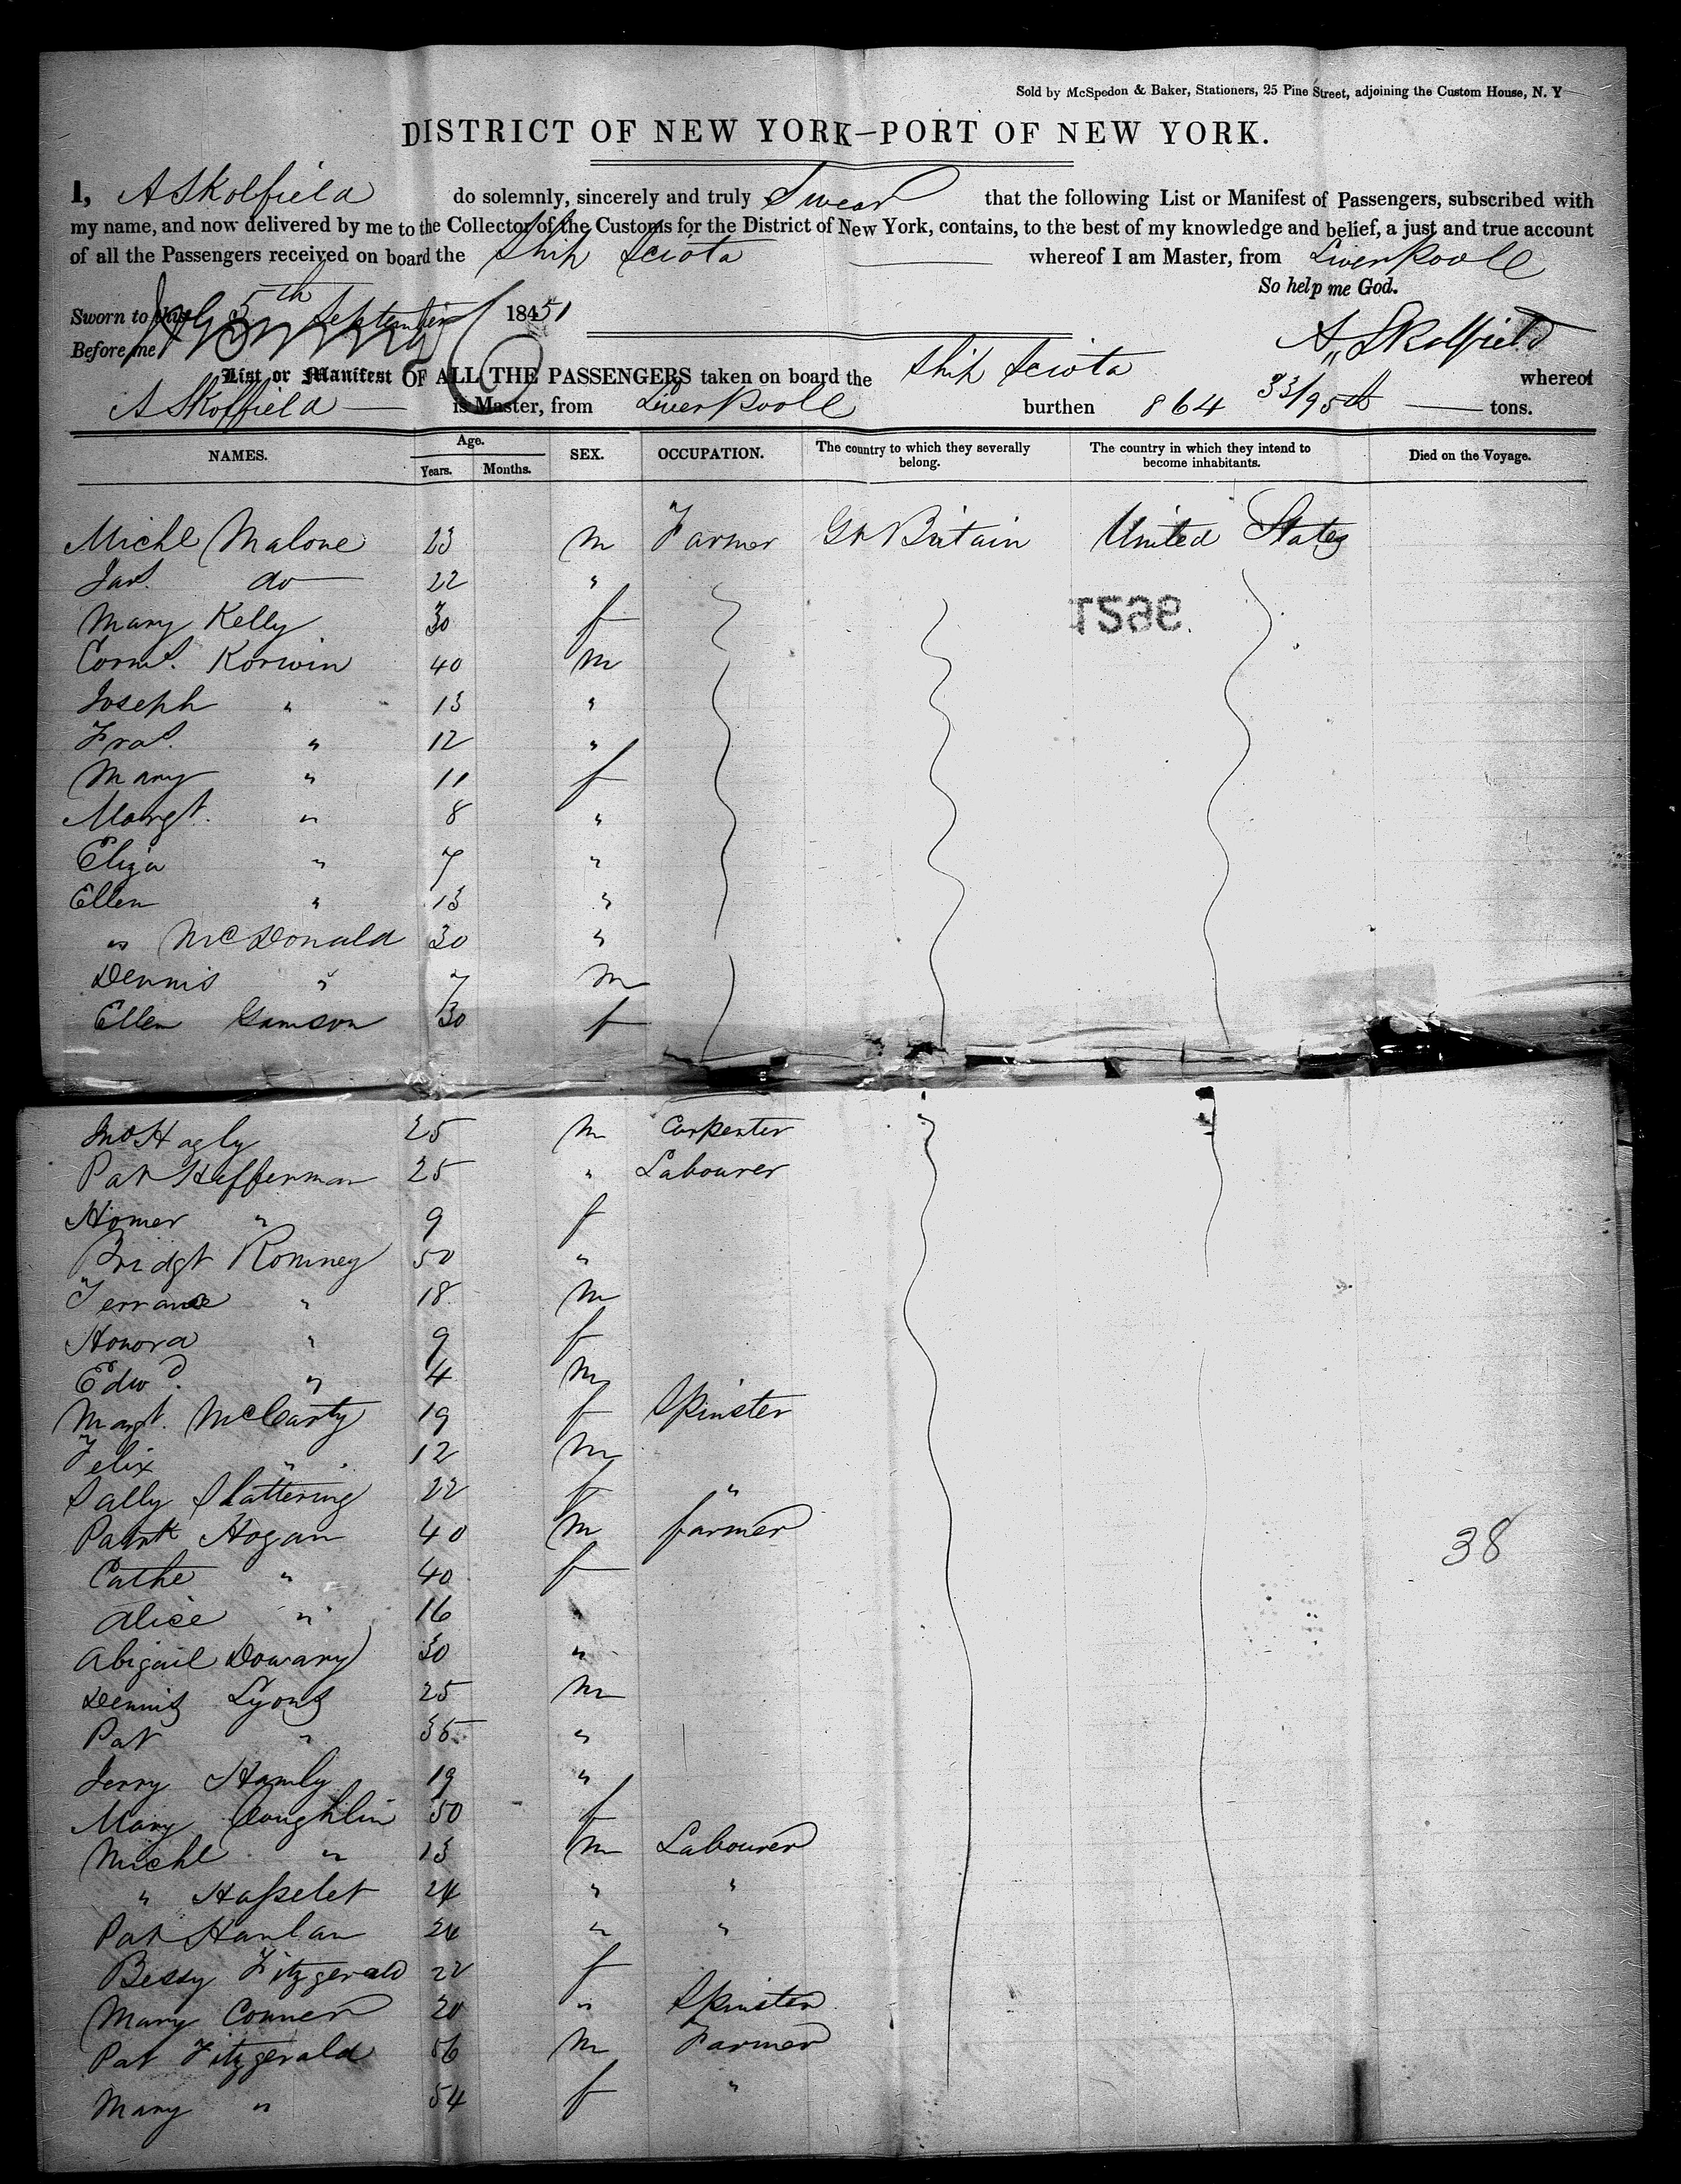 Sold by McSpedon & Baker, Stationers, 25 Pine Street, adjoining the Custom House, N. Y
DISTRICT OF NEW YORK—PORT OF NEW YORK.
I, A Skolfield do solemnly, sincerely and truly Swear that the following List or Manifest of Passengers, subscribed with
my name, and now delivered by me to the Collector of the Customs for the District of New York, contains, to the best of my knowledge and belief, a just and true account
of all the Passengers received on board the Ship Sciota whereof I am Master, from Liverpooll
So help me God.
Sworn to this 5th September 1851
Before me A,, Skolfield
List or Manifest OF ALL THE PASSENGERS taken on board the Ship Sciota whereof
A Skolfield is Master, from Liverpooll burthen 864 33/95th tons.
NAMES. Age. Years. Months. SEX. OCCUPATION. The country to which they severally belong. The country in which they intend to become inhabitants. Died on the Voyage.
Michl Malone 23 m Farmer Gt Britain United States
Jas. do 22 "
Mary Kelly 30 f
Corns. Korwin 40 m
Joseph " 13 "
Fras. " 12 "
Mary " 11 f
Margt. " 8 "
Eliza " 7 "
Ellen " 13 "
" McDonald 30 "
Dennis " 7 m
Ellen 30 f
Jno Hagly 25 m Carpenter
Pat Heffernan 25 " Labourer
Homer " 9 f
Bridgt Romney 50 "
Terrance " 18 m
Honora " 9 f
Edwd. " 4 m
Margt. McCarty 19 f Spinster
Felix " 12 m
Sally Slattering 22 f "
Patrk Hogan 40 m farmer
38
Cathe " 40 f
Alice " 16 "
Abigail Dowany 30 "
Dennis Lyons 25 m
Pat " 35 "
Jerry Hamly 19 "
Mary Coughlin 50 f
Michl " 13 m Labourer
" Hasselet 24 " "
Pat Hanlan 24 " "
Bessy Fitzgerald 22 f
Mary Conner 20 " Spinster
Pat Fitzgerald 56 m Farmer
Mary " 54 f "